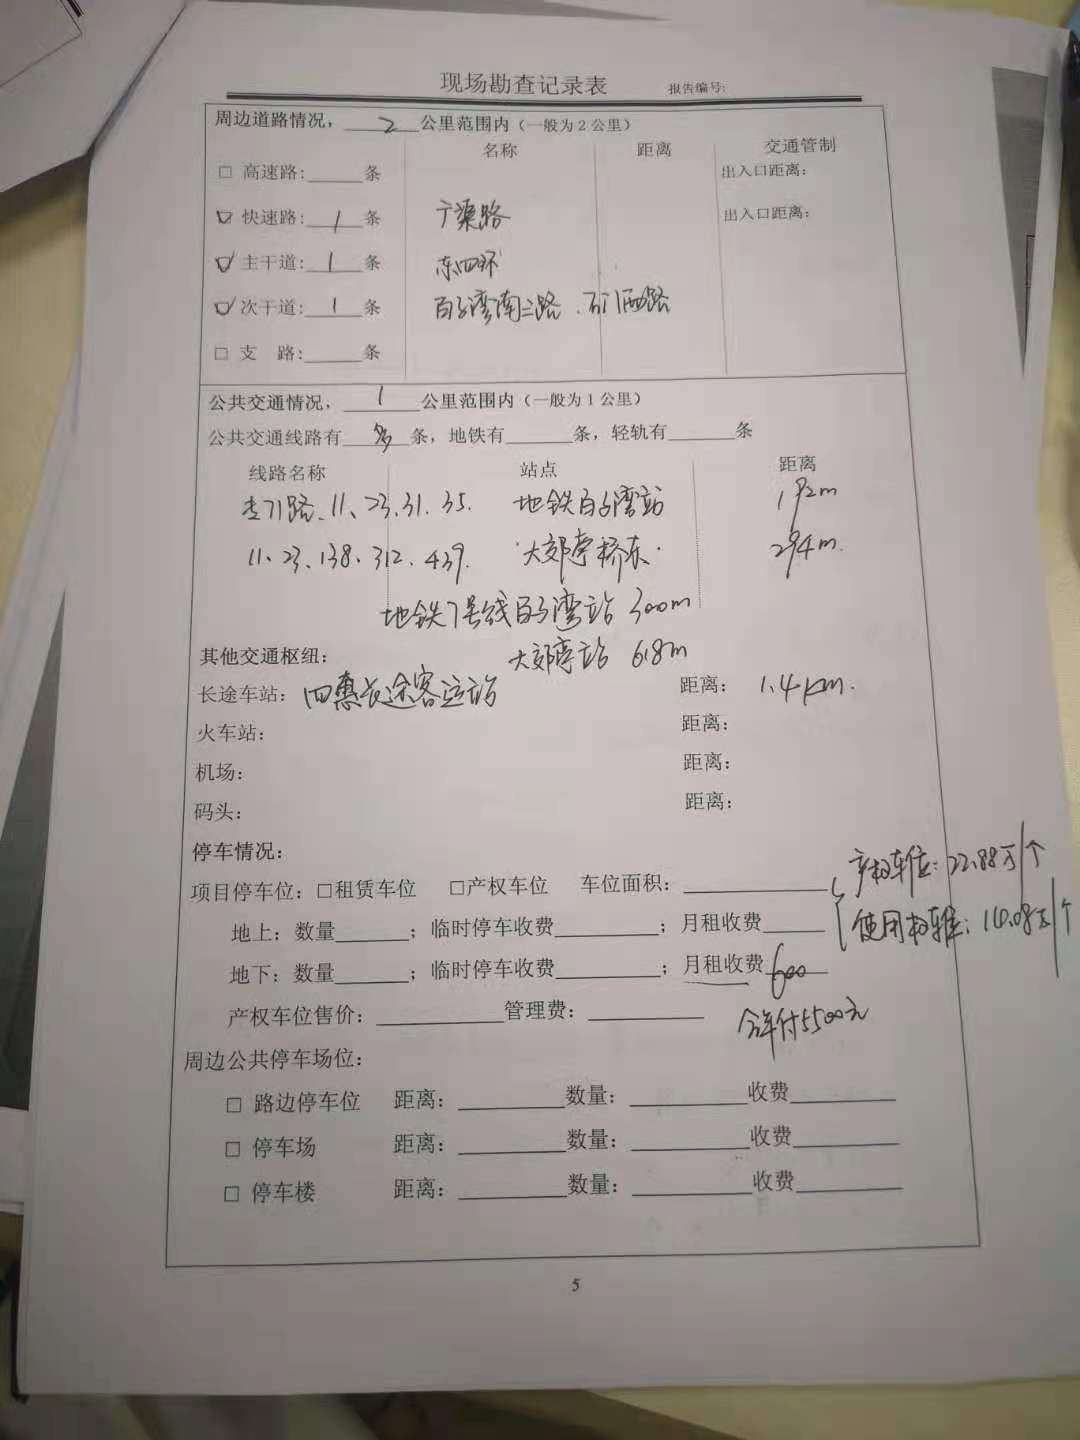 现场勘查记录表 报告编号:
周边道路情况，2公里范围内（一般为2公里）
名称 距离 交通管制
□ 高速路:______条 出入口距离:
☑ 快速路: 1 条 广渠路 出入口距离:
☑ 主干道: 1 条 东四环
☑ 次干道: 1 条 百子湾南二路、石门西路
□ 支 路:______条
公共交通情况，1公里范围内（一般为1公里）
公共交通线路有 多 条，地铁有______条，轻轨有______条
线路名称 站点 距离
71路、11、23、31、35. 地铁百子湾站 192m
11、23、138、312、439. 大郊亭桥东 294m.
地铁7号线百子湾站 300m
其他交通枢纽: 大郊亭站 618m
长途车站: 四惠长途客运站 距离: 1.4km.
火车站: 距离:
机场: 距离:
码头: 距离:
停车情况:
产权车位: 22.88万/个
项目停车位: □租赁车位 □产权车位 车位面积:__________
使用权车位: 万/个
地上: 数量______; 临时停车收费________; 月租收费_____
地下: 数量______; 临时停车收费________; 月租收费 600
产权车位售价:__________管理费:__________ 年付5500元
周边公共停车场位:
□ 路边停车位 距离:________数量:__________收费________
□ 停车场 距离:________数量:__________收费________
□ 停车楼 距离:________数量:__________收费________
5